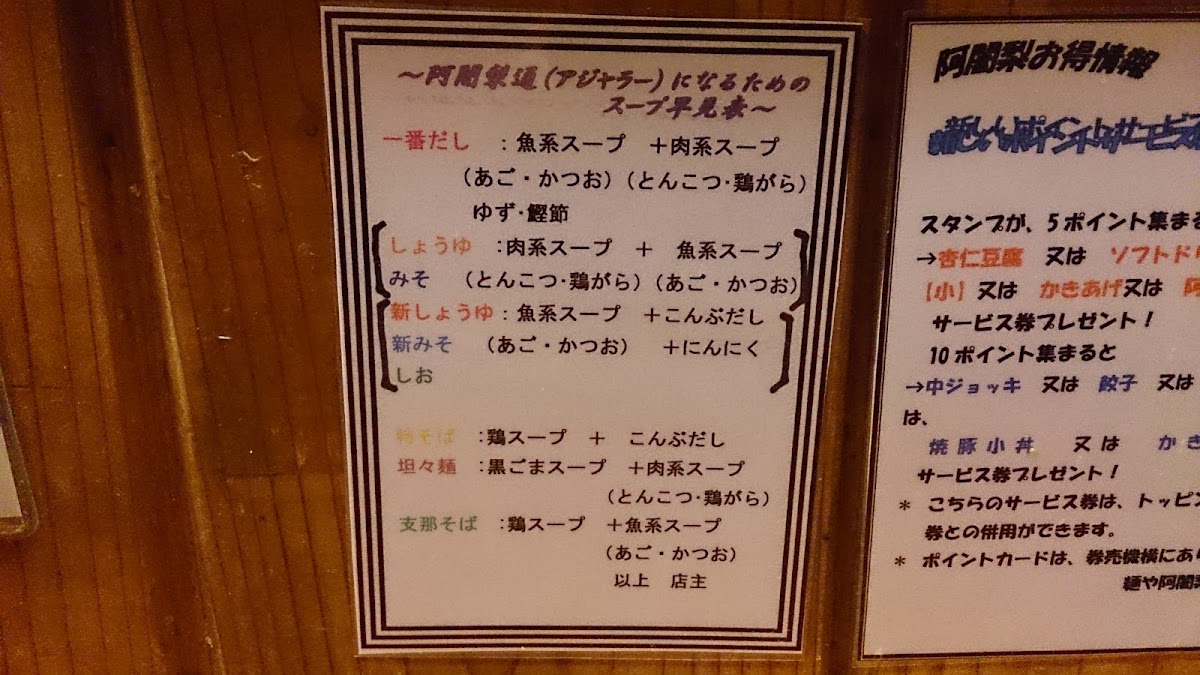 ～阿闍梨通（アジャラー）になるための
スープ早見表～
一番だし ：魚系スープ ＋肉系スープ
（あご・かつお）（とんこつ・鶏がら）
ゆず・鰹節
しょうゆ ：肉系スープ ＋ 魚系スープ
みそ （とんこつ・鶏がら）（あご・かつお）
新しょうゆ：魚系スープ ＋こんぶだし
新みそ （あご・かつお） ＋にんにく
しお
そば ：鶏スープ ＋ こんぶだし
坦々麺 ：黒ごまスープ ＋肉系スープ
（とんこつ・鶏がら）
支那そば ：鶏スープ ＋魚系スープ
（あご・かつお）
以上 店主
阿闍梨お得情報
新しいポイントサービス
スタンプが、5ポイント集まる
→杏仁豆腐 又は ソフトドリ
【小】又は かきあげ又は
サービス券プレゼント！
10ポイント集まると
→中ジョッキ 又は 餃子 又は
は、
焼豚小丼 又は かき
サービス券プレゼント！
＊ こちらのサービス券は、トッピン
券との併用ができます。
＊ ポイントカードは、券売機横にあり
麺や阿闍梨